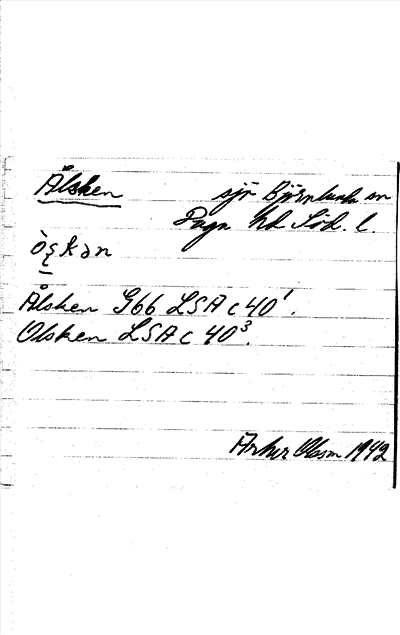 Ålsken sjö Björnlunda sn
Daga hd Söd. l.
ò̱ʂkən
Ålsken G66 LSA C 40¹.
Olsken LSA C 40³.
Arthur Olsson 1942